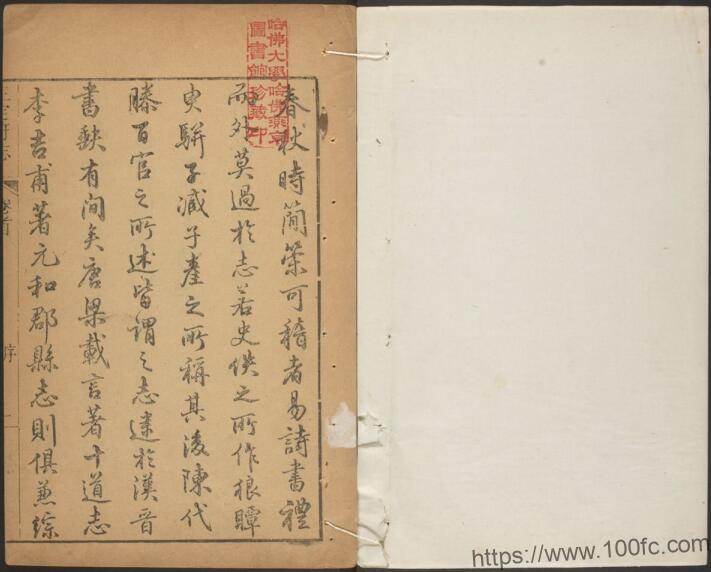 春秋時簡策可稽者易詩書禮
而外莫過於志若史佚之所作狼瞫
史駢子臧子產之所稱其後陳代
滕百官之所述皆謂之志逮於漢晉
書缺有間矣唐梁載言著十道志
李吉甫著元和郡縣志則俱兼綜
府志
卷首
序
哈佛大學哈佛燕京
圖書館珍藏印
https://www.100fc.com